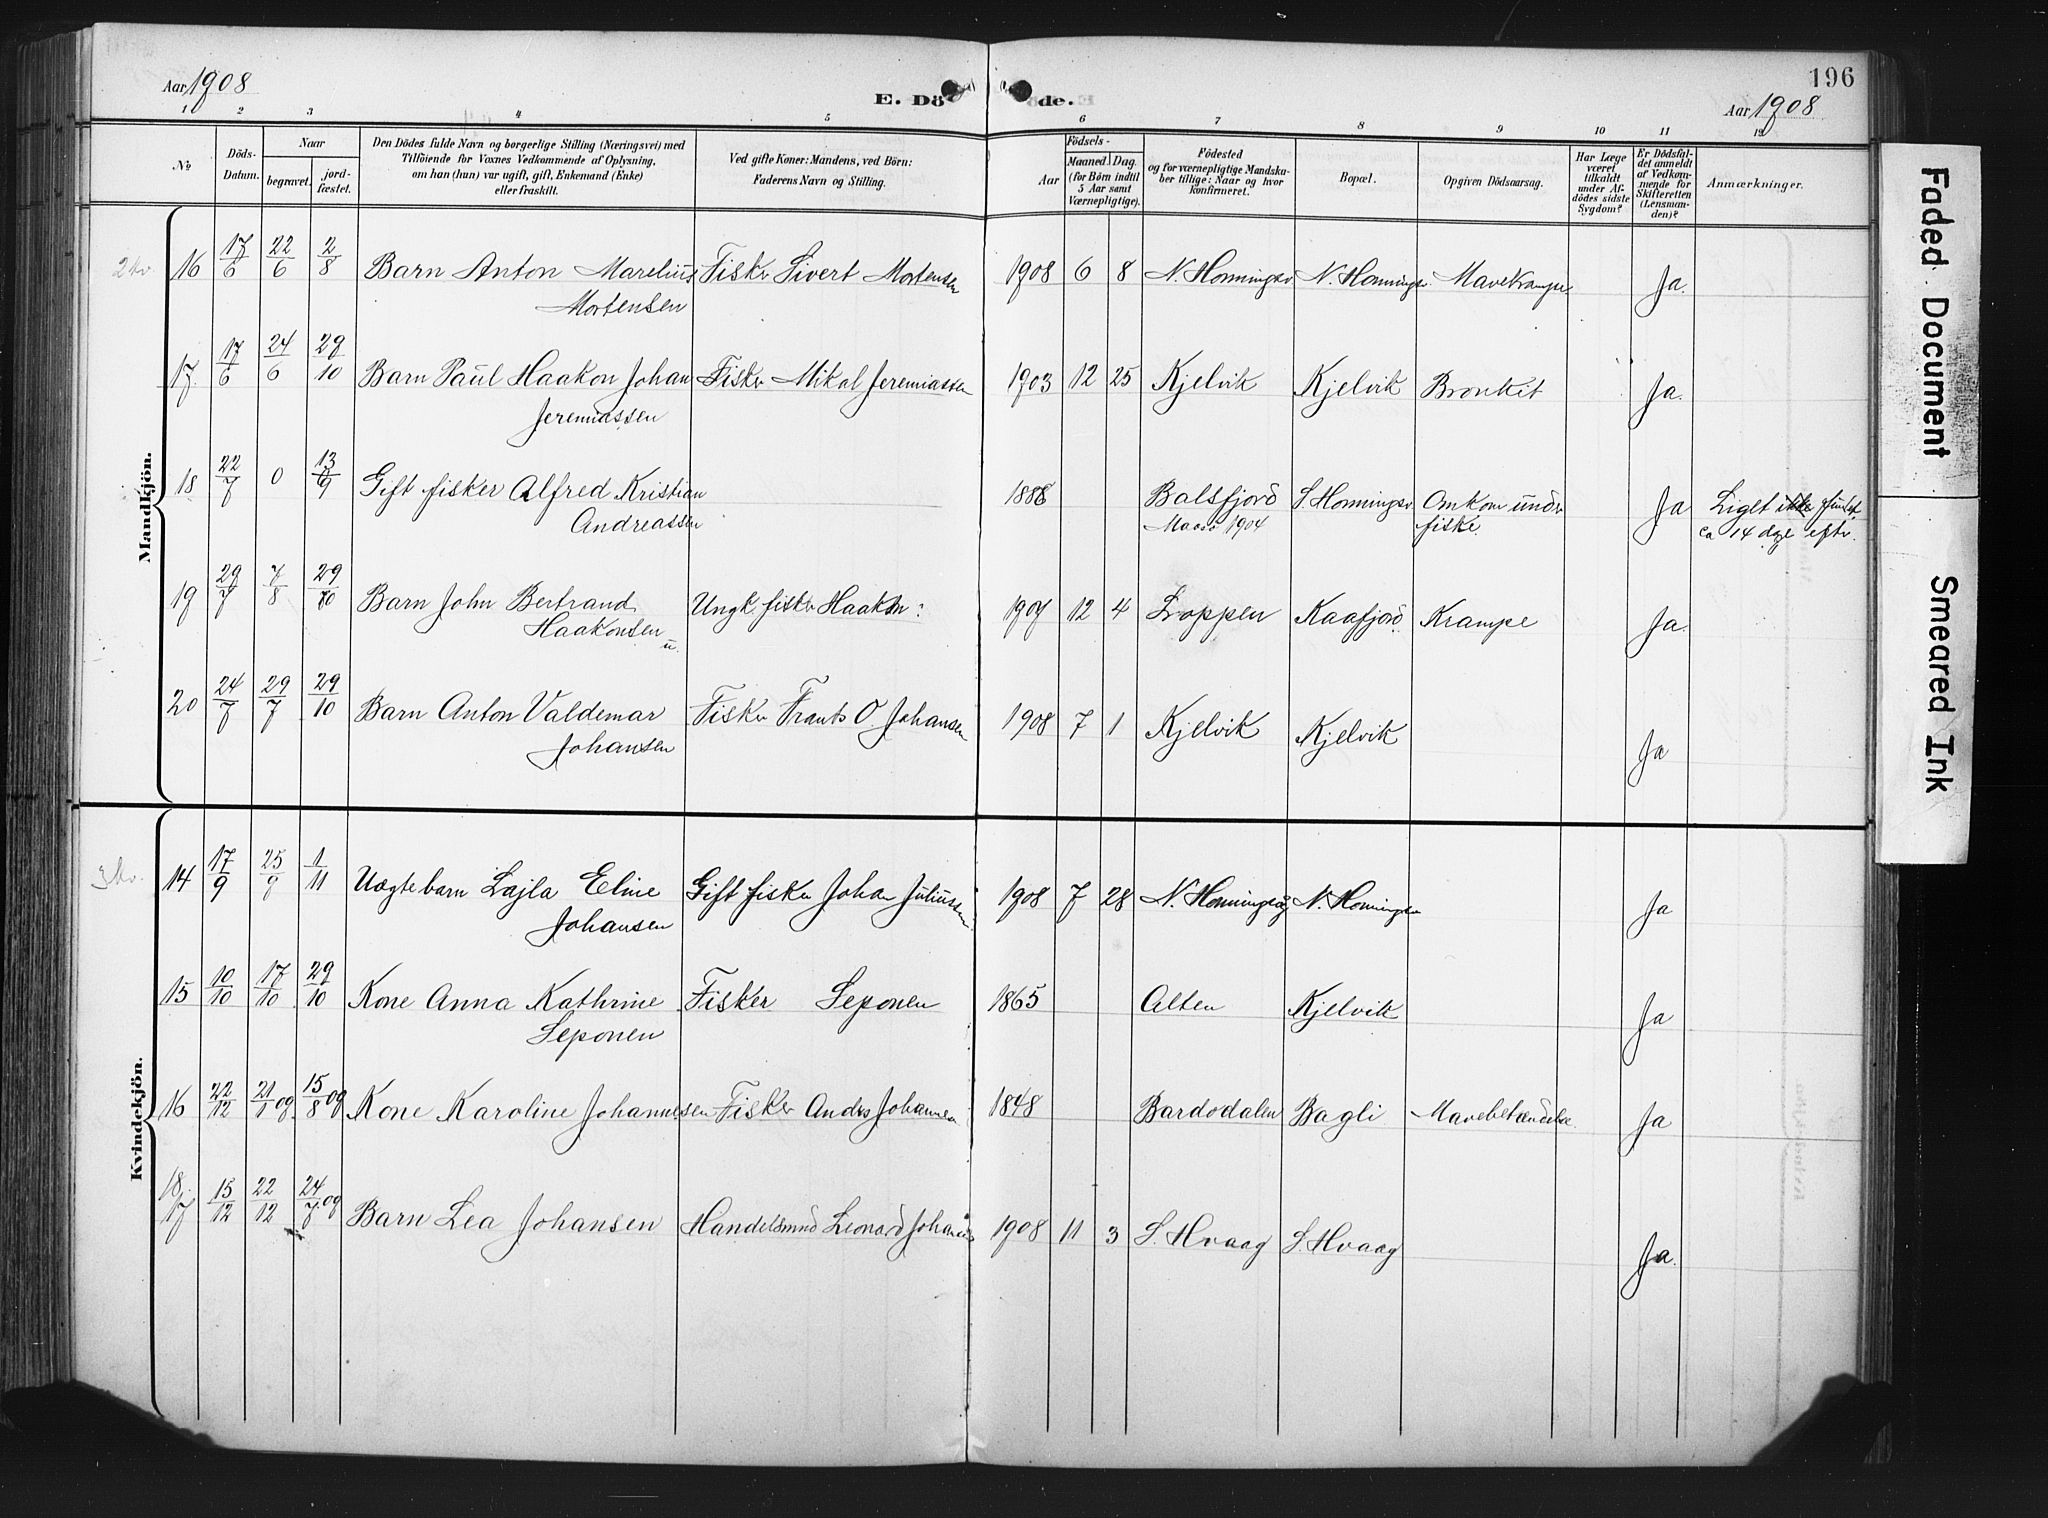 Aar 1908
E. Dö
de.
196
Aar 1908
1 2 3 4 5 6 7 8 9 10 11 12
No.
Döds-Datum.
Naar
begravet.
jord-fæstet.
Den Dödes fulde Navn og borgerlige Stilling (Næringsvei) med
Tilföiende for Voxnes Vedkommende af Oplysning,
om han (hun) var ugift, gift, Enkemand (Enke)
eller fraskilt.
Ved gifte Koner: Mandens, ved Börn:
Faderens Navn og Stilling.
Födsels-
Aar
Maaned. Dag.
(for Börn indtil
5 Aar samt
Værnepligtige).
Födested
og for værnepligtige Mandska-
ber tillige: Naar og hvor
konfirmeret.
Bopæl.
Opgiven Dödsaarsag.
Har Læge
været
tilkaldt
under Af-
dödes sidste
Sygdom?
Er Dödsfal-
det anmeldt
af Vedkom-
mende for
Skifteretten
(Lensman-
den)?
Anmærkninger.
Mandkjön.
2 kv.
16 17/6 22/6 2/8 Barn Anton Marelius Fisker Sivert Mortensen 1908 6 8 N. Honningsv N. Honningsv. Mavekrampe. Ja.
Mortensen
17. 17/6 24/6 29/10 Barn Paul Haakon Johan Fisker Mikal Jeremiassen 1903 12 25 Kjelvik Kjelvik Bronkit Ja.
Jeremiassen
18 22/7 0 13/9 Gift fisker Alfred Kristian 1886 Balsfjord S. Honningsv. Omkom under Ja Liget ikke fundet.
Andreassen Maasö 1904 fiske. ca 14 dage eftr.
19 29/7 7/8 29/10 Barn John Bertrand Ungk. fisker Haakon: 1907 12 4 Loppen Kaafjord Krampe Ja.
Haakonsen
u.
20 24/7 29/7 29/10 Barn Anton Valdemar Fisker Frants O. Johansen 1908 7 1 Kjelvik Kjelvik Ja
Johansen
Kvindekjön.
3 kv.
14 17/9 25/9 1/11 Uægtebarn Lajla Eline Gift fisker Johan Juliussen 1908 7 28 N. Honningsvåg N. Honningsv Ja
Johansen
15 10/10 17/10 29/10 Kone Anna Kathrine Fisker Seponen 1865 Alten Kjelvik Ja
Seponen
16 22/12 21/1 09. 15/8 09 Kone Karoline Johannesen Fisker Andrs Johannesen 1848 Bardodalen Bagli Mavebetændelse. Ja
18.
17 15/12 22/12 24/7 09 Barn Lea Johansen Handelsmnd Leonard Johansen 1908 11 3 S. Hvaag S. Hvaag Ja.
Faded Document
Smeared Ink